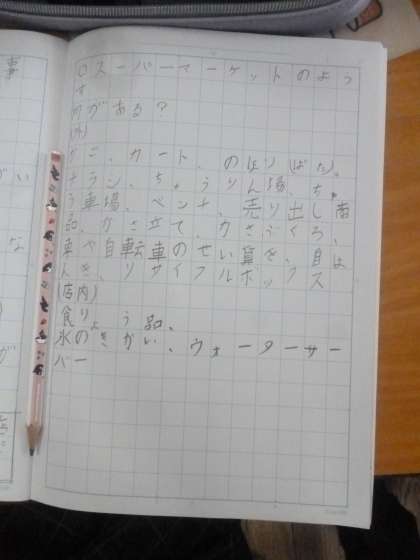 ○スーパーマーケットのよう
す
何がある?
(外)
かご、カート、のぼり(ばた)、
チラシ、ちゅうりん場、ちゅ
う車場、ベンチ、売り出し商
品、かさ立て、かさぶくろ、
車や自転車のせい算き、自は
んき、リサイクルボックス
(店内)
食りょう品、
氷のきかい、ウォーターサー
バー